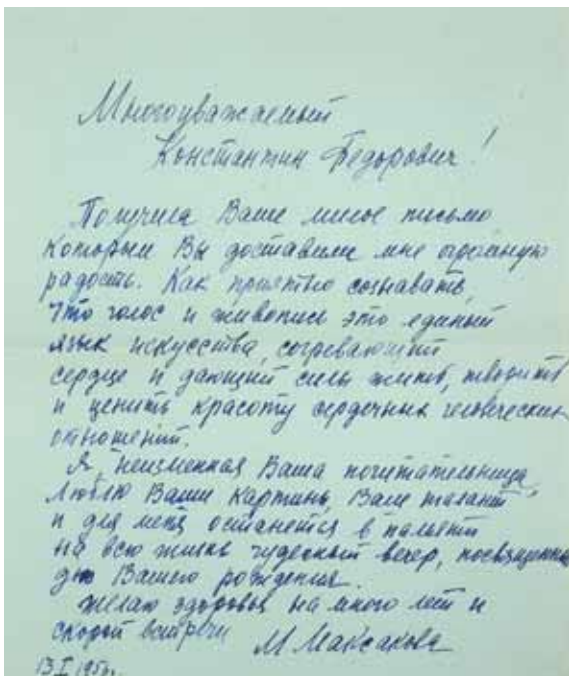 Многоуважаемый
Константин Федорович!
Получила Ваше милое письмо
которым Вы доставили мне огромную
радость. Как приятно сознавать,
что голос и живопись это единый
язык искусства, согревающий
сердце и дающий силы жить, творить
и ценить красоту сердечных человеческих
отношений.
Я, неизменная Ваша почитательница,
люблю Ваши картины, Ваш талант
и для меня останется в памяти
на всю жизнь чудесный вечер, посвященный
дню Вашего рождения.
Желаю здоровья на много лет и
скорой встречи М. Максакова
13 I 195 г.